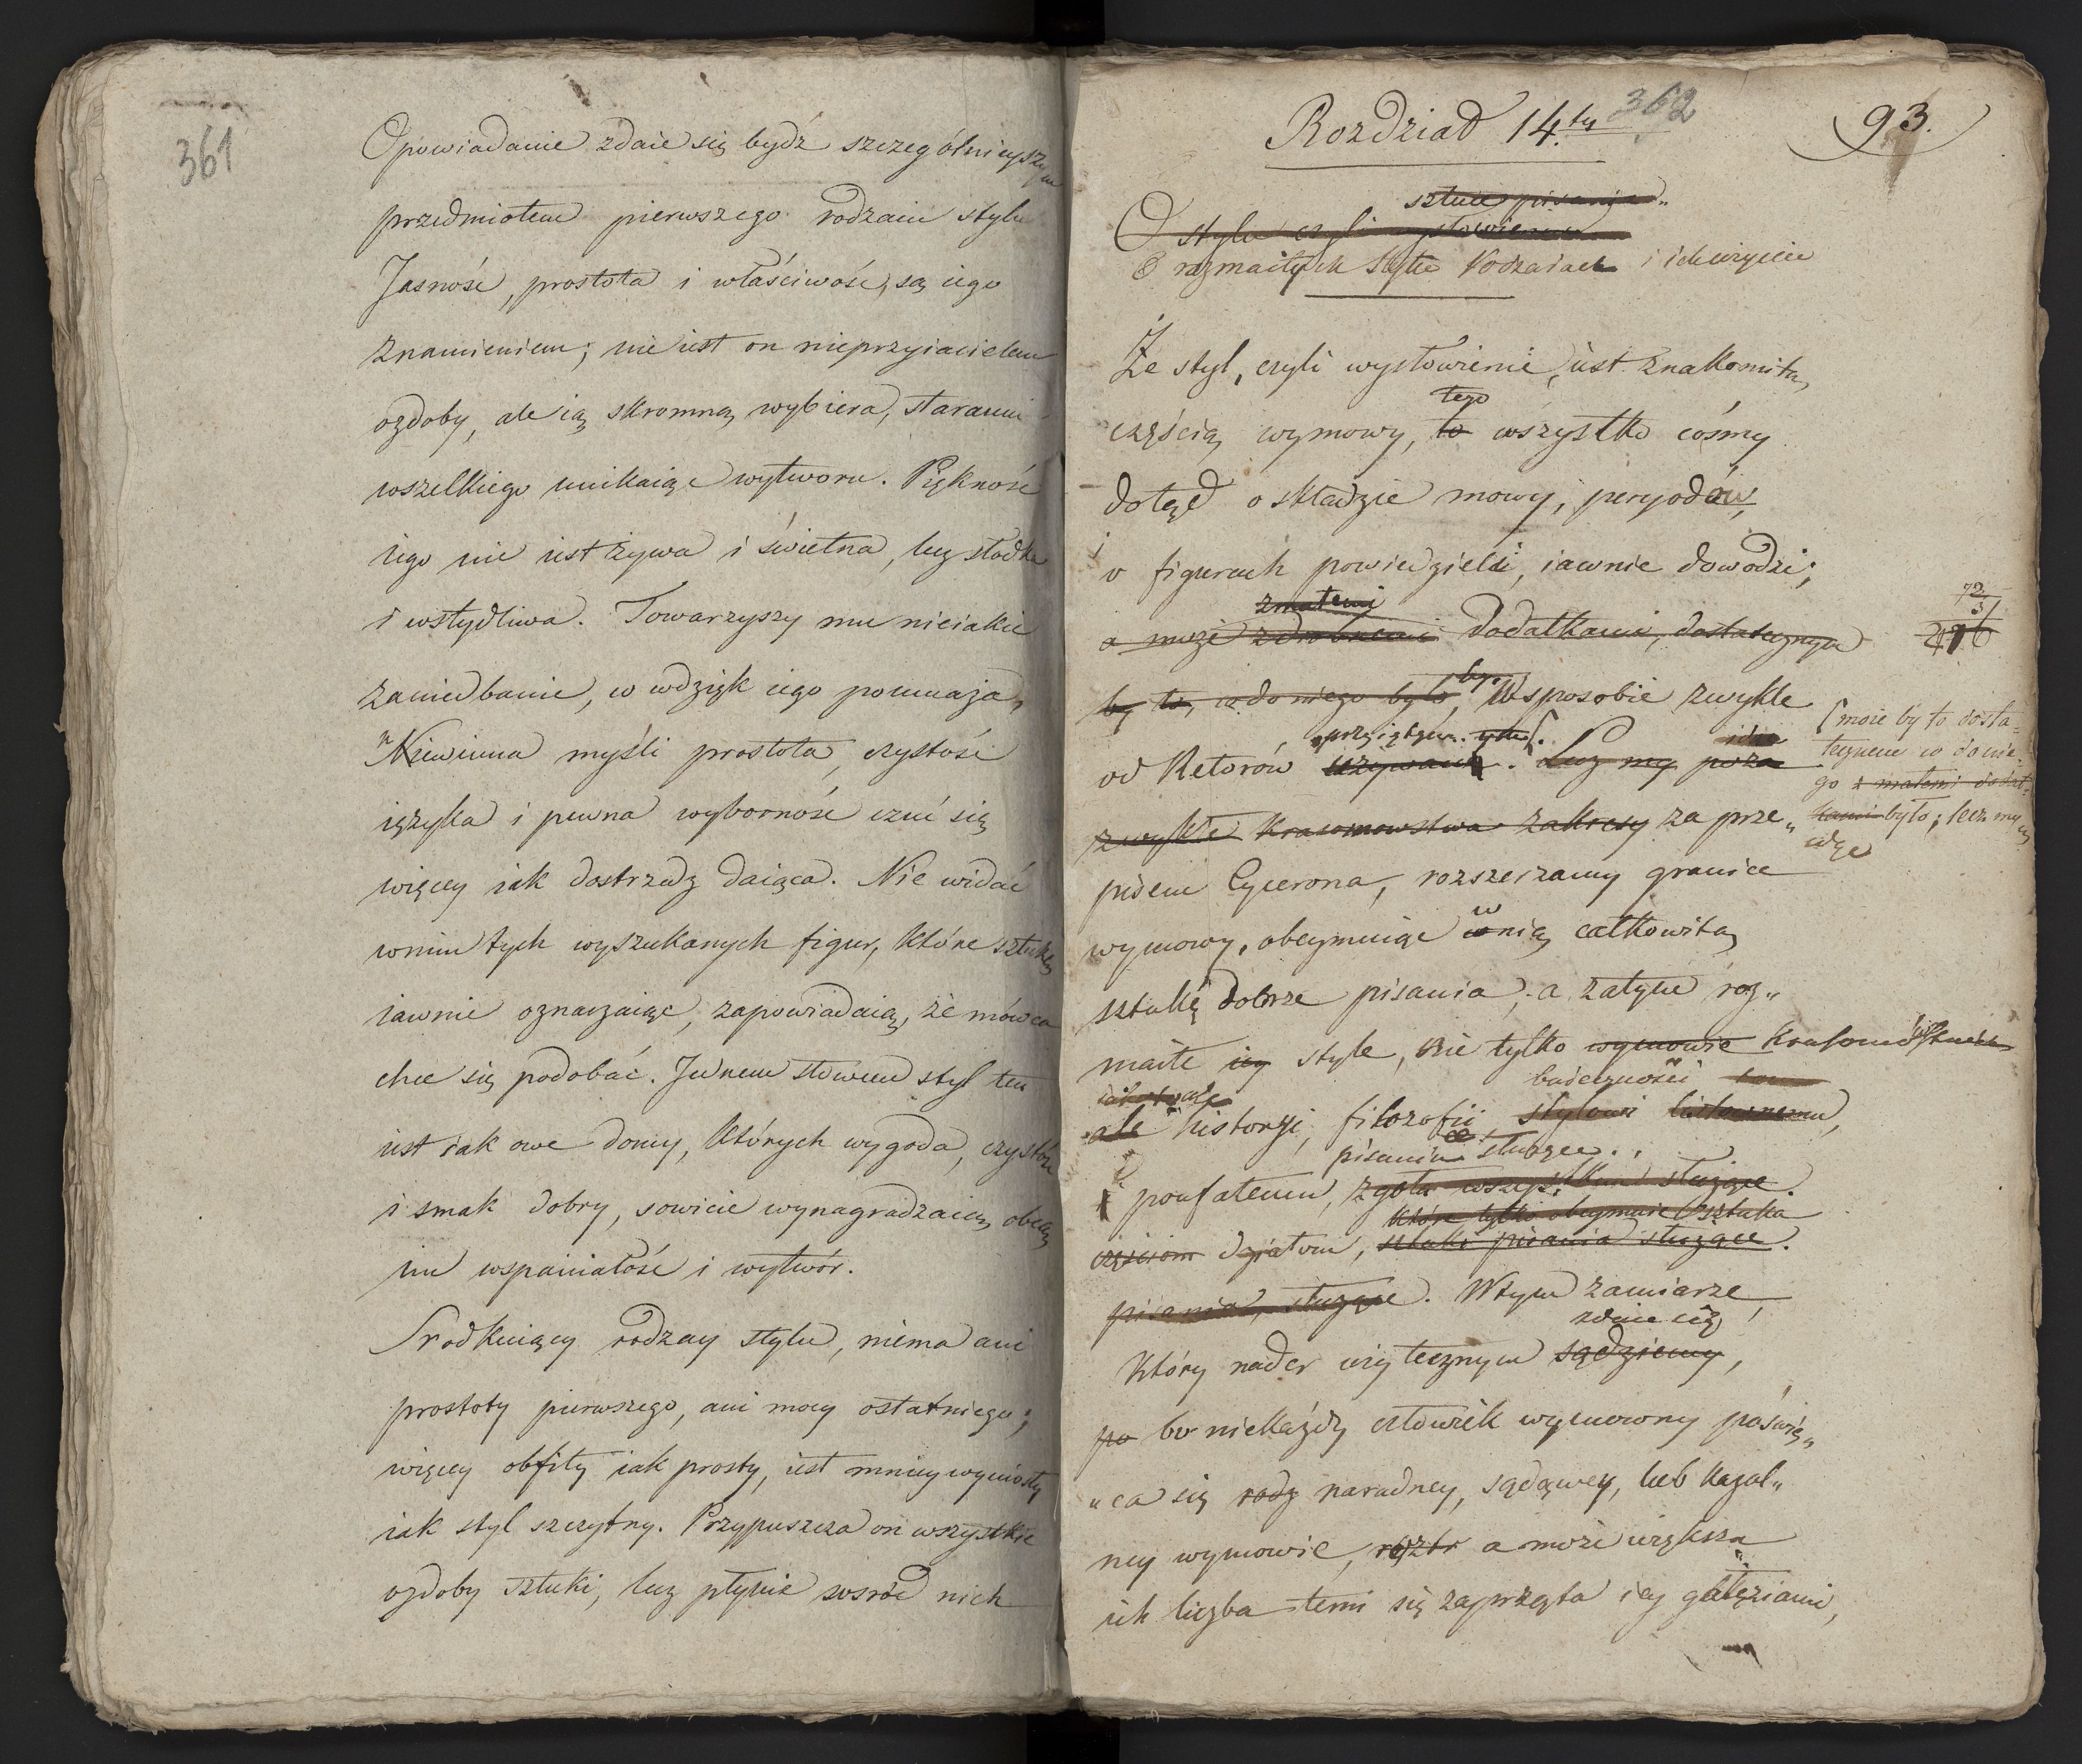 361
Opowiadanie zdaie się bydź szczególnieyszym
przedmiotem pierwszego rodzaiu stylu
Jasność, prostota i właściwość, są iego
znamieniem; nie iest on nieprzyiacielem
ozdoby, ale ią skromną wybiera, starannie
wszelkiego unikaiąc wytworu. Piękność
iego nie iest żywa i świetna, lecz słodka
i wstydliwa. Towarzyszy mu nieiakie
zaniedbanie, co wdzięk iego pomnaża,
Niewinna myśli prostota, czystość
ięzyka i pewna wyborność czuć się
więcey iak dostrzedz daiąca. Nie widać
w nim tych wyszukanych figur, które sztukę
iawnie oznaczaiąc, zapowiadaią, że mówca
chce się podobać. Jednem słowem styl ten
iest iak owe domy, których wygoda, czystość
i smak dobry, sowicie wynagradzaią obcą
im wspaniałość i wytwór.
Srodkuiący rodzay stylu, niema ani
prostoty pierwszego, ani mocy ostatniego;
więcey obfity iak prosty, iest mniey wyniosły
iak styl szczytny. Przypuszcza on wszystkie
ozdoby sztuki, lecz płynie wsrod nich
Rozdział 14.ty 362
93.
sztuce pisania
O stylu czyli wysłowieniu
O rozmaitych Stylu Rodzaiach i ich użyciu
Że styl, czyli wysłowienie, iest znakomitą
tego
częścią wymowy, to wszystko cośmy
dotąd o składzie mowy, peryodów,
i
o figurach powiedzieli, iawnie dowodzi;
z małemi
a może z drobnemi dodatkami, dostatecznym
72
31
by to, co do niego było, W sposobie zwykle
przyiętym
od Retorów używanym. Lecz my poza
idąc
zwykłe krasomowstwa zakresy za prze„
[może by to dosta=
tecznem co do nie=
go z małemi dodat=
kami było; lecz my
idąc
pisem Cycerona, rozszerzamy granice
w
wymowy, obeymuiąc w nią całkowitą
sztukę dobrze pisania; a zatym roz„
maite iey style, nie tylko wymowie krasomówskiey
badeczności
ale historyi, filozofii, stylowi listownemu,
pisaniu służące.
i poufałemu, zgoła wszystkim służące.
które tylko obeymuie sztuka
częściom działom, sztuki pisania służące.
pisania, służące. W tym zamiarze,
zdaie się
który nader użytecznym sądziemy,
po bo nie każdy człowiek wymowny poświę„
„ca się rodz naradney, sądowey, lub kazal„
ney wymowie, a może większa
ich liczba temi się zaprzęta iey gałęziami,